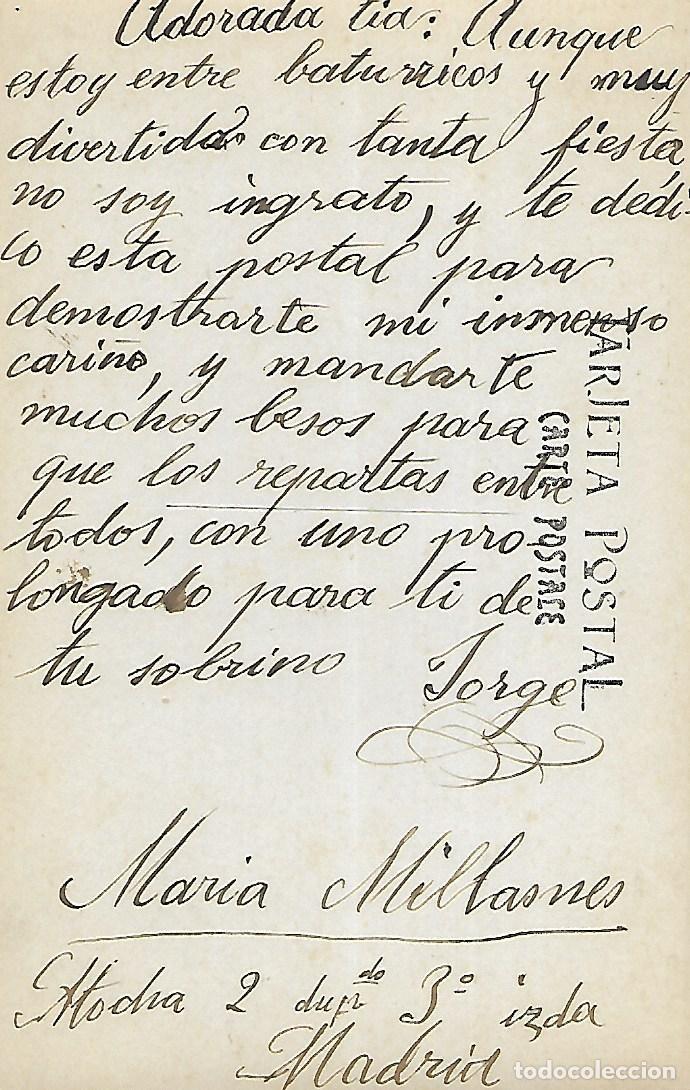 Adorada tia: Aunque
estoy entre baturricos y muy
divertido con tanta fiesta,
no soy ingrato, y te dedi-
co esta postal para
demostrarte mi inmenso
cariño, y mandarte
muchos besos para
que los repartas entre
todos, con uno pro
longado para ti de
tu sobrino Jorge
TARJETA POSTAL
CARTE POSTALE
Maria Millasnes
Atocha 2 dupdo 3º izda
Madrid
todocoleccion.net